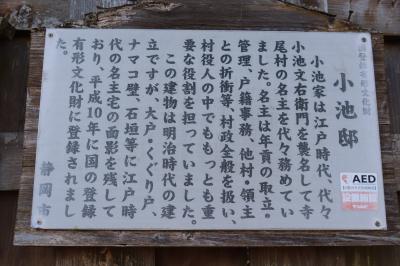 国登録有形文化財
小池邸
小池家は江戸時代、代々
小池文右衛門を襲名して寺
尾村の名主を代々務めてい
ました。名主は年貢の取立・
管理、戸籍事務、他村・領主
との折衝等、村政全般を扱い、
村役人の中でももっとも重
要な役割を担っていました。
この建物は明治時代の建
立ですが、大戸・くぐり戸、
ナマコ壁、石垣等に江戸時
代の名主宅の面影を残して
おり、平成10年に国の登録
有形文化財に登録されまし
た。
静岡市
AED
設置施設